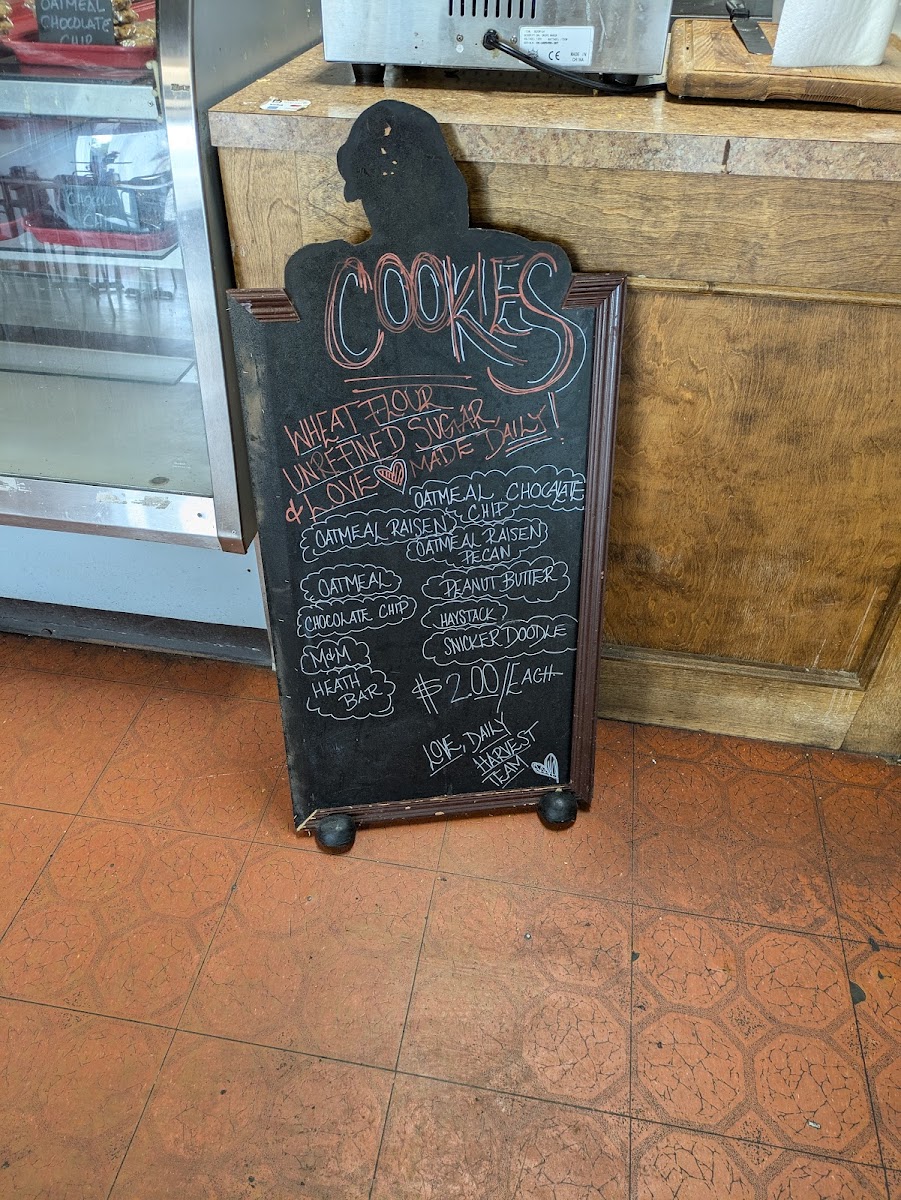 OATMEAL
CHOCOLATE
CHIP
MADE IN
CHINA
COOKIES
WHEAT FLOUR
UNREFINED SUGAR,
& LOVE MADE DAILY!
OATMEAL CHOCALATE
CHIP
OATMEAL RAISEN
OATMEAL RAISEN
PECAN
OATMEAL
PEANUT BUTTER
CHOCOLATE CHIP
HAYSTACK
SNICKERDOODLE
M&M
HEATH
BAR
$2.00/EACH
LOVE, DAILY
HARVEST
TEAM